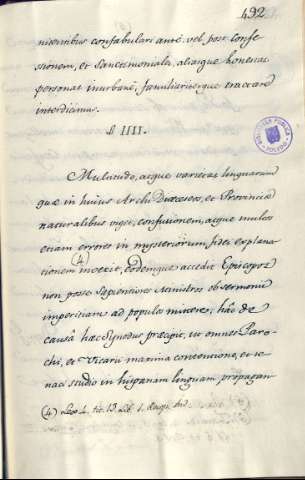 492
nientibus confabulari ante vel post confe
ssionem, et sanctimoniales, aliasque honestas
personas inurbanè, familiariterque tractare
interdicimus.
§ IIII.
Multitudo, atque varietas linguarum
quae in huius Archi Dioecesos, et Provinciae
naturalibus viget, confusionem, atque multos
etiam errores in mysteriorum fidei explana
(4)
tionem invexit, eodemque accedit Episcopos
non posse sapientiores Ministros ob sermonis
imperitiam ad populos mittere; hâc de
causâ haec Synodus praecipit, ut omnes Paro
chi, et Vicarii maxima contentione, et te
naci studio in hispanam linguam propagan
(4) Leg. 4. tit. 13. Lib. 1. Recop. Ind.
BIBLIOTECA PUBLICA
TOLEDO